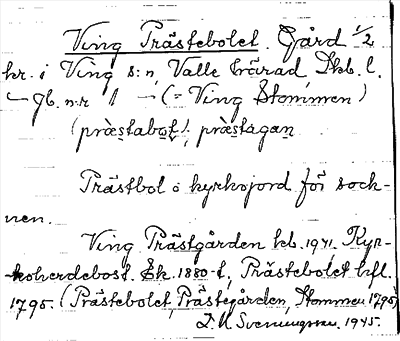 Ving Prästebolet. Gård 1/2
kr. i Ving s:n, Valle härad, Skb. l.
Jb. n:r 1 — (= Ving Stommen)
(præstabot), præstagan
Prästbol o kyrkojord för sock-
nen.
Ving Prästgården kb. 1941, Kyr-
koherdebost. Ek. 1880-t, Prästebolet hfl.
1795. (Prästebolet, Prästegården, Stommen 1795)
D. A. Sveningsson. 1945.